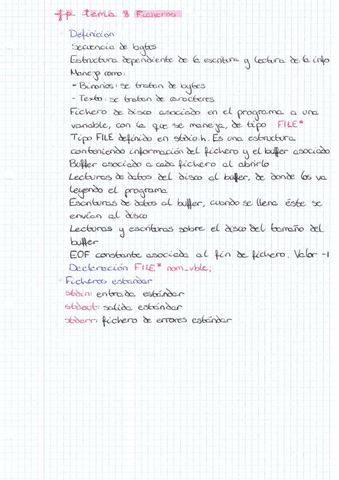 fp tema 8 Ficheros
Definición
Secuencia de bytes
Estructura dependiente de la escritura y lectura de la info
Manejo como:
* Binarios: se tratan de bytes
- Texto: se tratan de caracteres
Fichero de disco asociado en el programa a una
variable, con la que se maneja, de tipo FILE*
Tipo FILE definido en stdio.h. Es una estructura
conteniendo información del fichero y el buffer asociado
Buffer asociado a cada fichero al abrirlo
Lecturas de datos del disco al buffer, de donde los va
leyendo el programa
Escrituras de datos al buffer, cuando se llena éste se
envían al disco
Lecturas y escrituras sobre el disco del tamaño del
buffer
EOF constante asociada al fin de fichero. Valor -1
Declaración FILE* nom_vble;
Ficheros estandar
stdin: entrada estándar
stdout: salida estándar
stderr: fichero de errores estándar